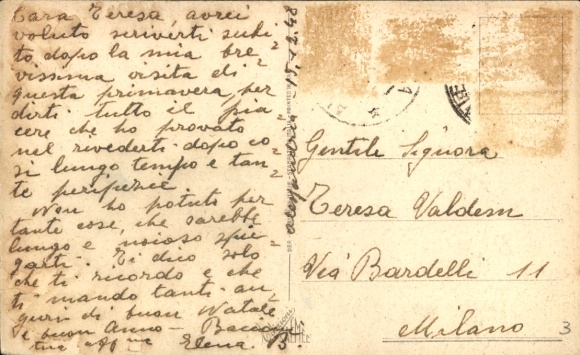 Cara Teresa, avrei
voluto scriverti subi=
to, dopo la mia bre=
vissima visita di
questa primavera, per
dirti tutto il pia=
cere che ho provato
nel rivederti dopo co=
si lungo tempo e tan=
te peripezie
Non ho potuto per
tante cose, che sarebbe
lungo e noioso spie=
garti. Ti dico solo
che ti ricordo e che
ti mando tanti au=
guri di buon Natale
e buon Anno - Bacioni
tua aff ma Elena.
15-12.48
Gentile Signora
Teresa Valdem
Via Bardelli 11
Milano
3